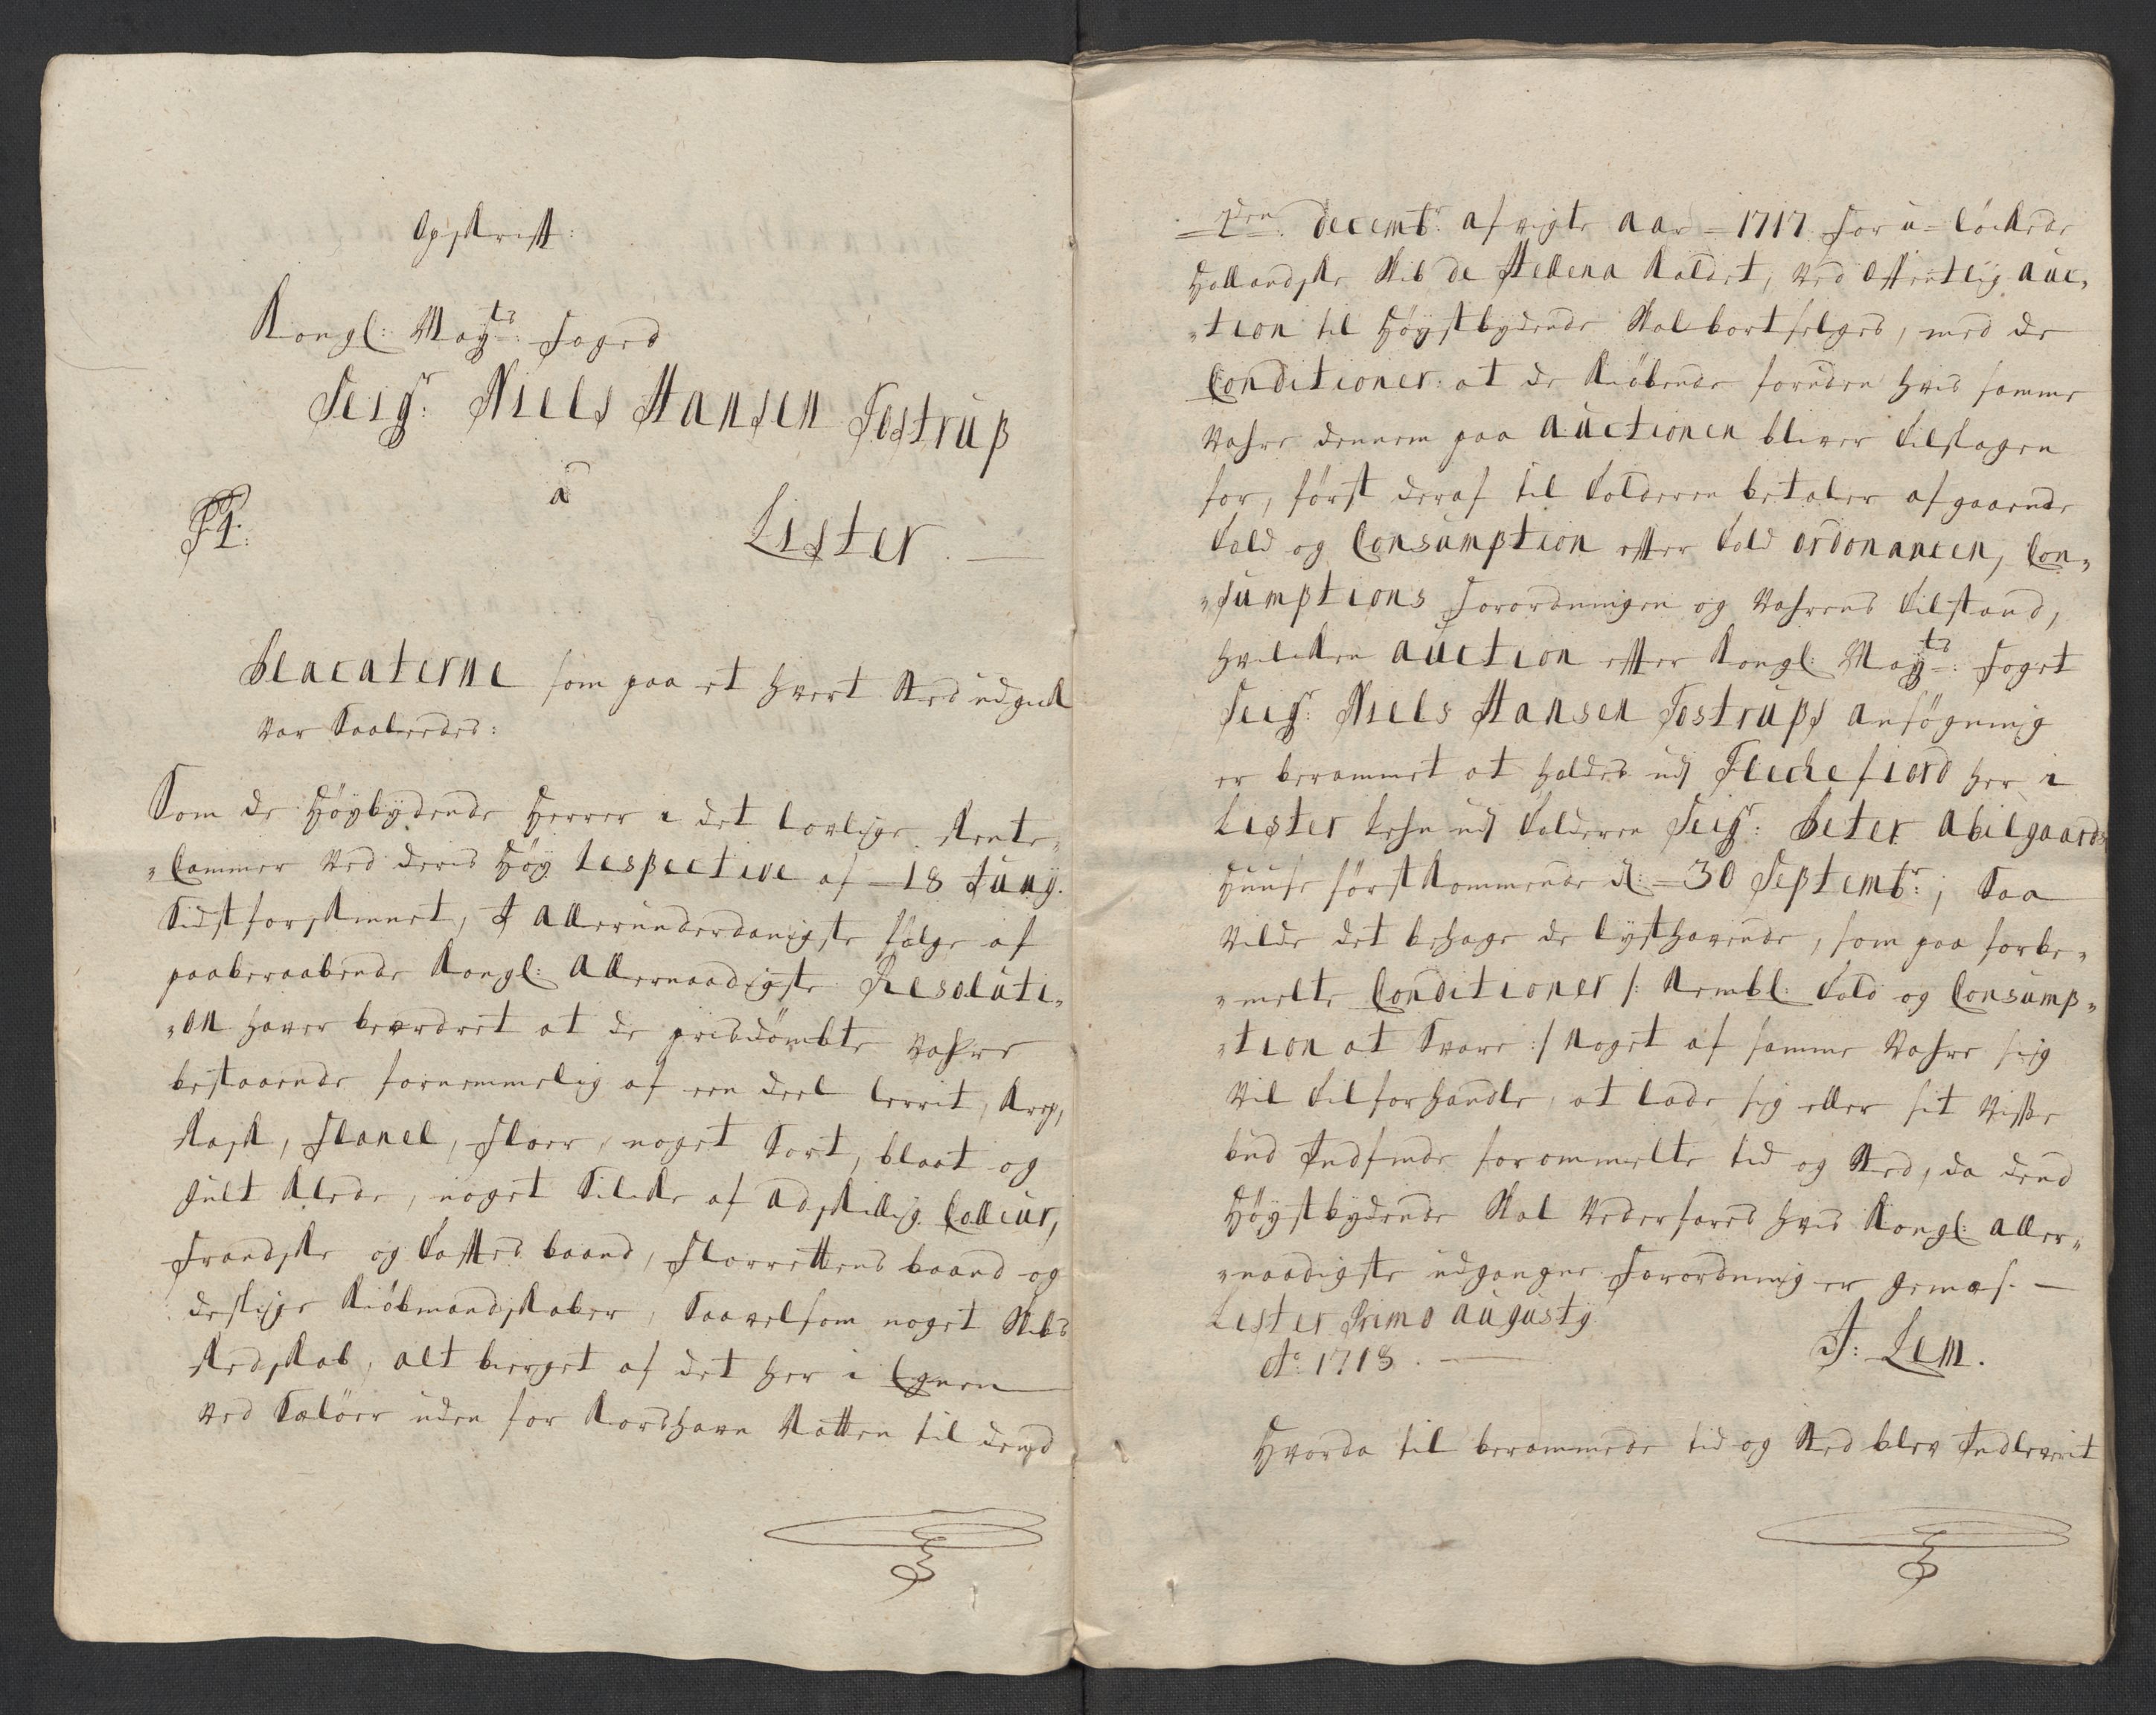 Opskrift:
Kongl: May:ts Foged
Seigr: Niels Hansen Tostrup
a
Lister. —
Placaterne som paa et hvert sted udgick
var Saaledes:
Som de Høybydende Herrer i det lovlige Rente-
"Cammer ved deris Høy respective af 18 Juny.
Sidst forskinnet, I Allerunderdanigste følge af
paaberaabende Kongl: Allernaadigste Resoluti„
„on haver beordret at de prisdømbte vahre
bestaaende fornemmelig af een deel lerrit, Krep,
Rask, Flanel, Floer, noget Sort, blaat og
gult Klæde, noget Silcke af adskillig Colleur,
Frandske og Taftes baand, Florrettens baand og
deslige Kiøbmandskaber, Saavelsom noget Skibs
Redskab, alt bierget af det her i Egnen
ved Sælöer uden for Korshavn Natten til dend
2den decembr: afvigte aar 1717 for u-løckede
Hollandske Skib de Hellena kaldet, ved offentlig auc„
„tion til Høystbydende Skal bortselges, med de
Conditioner: at de Kiøbende foruden hvis samme
vahre dennem paa auctionen bliver tilslagen
for, først deraf til Tolderen betaler afgaaende
Told og Consumption efter Told ordonancen, Con„
„sumptions Forordningen og Vahrens tilstand,
hvilcken auction efter Kongl: May:ts Foget
Seigr: Niels Hansen Tostrups ansøgning
er berammet at holdes udj Fleckefiord her i
Lister Lehn udj Tolderen Seigr: Peter Abilgaards
Huuse førstkommende d: 30 Septembr:, Saa
vilde det behage de lysthavende, som paa forbe„
„melte Conditioner /: Nembl: Told og Consump„
„tion at Svare :/ Noget af samme Vahre sig
vil tilforhandle, at lade sig eller sit visse
bud Indfinde forommelte tid og Sted, da dend
Høystbydende Skal vederfares hvis Kongl: aller„
„naadigste udgangne Forordning er gemæs. —
Lister Primo Augusty
Ao: 1718. —
J: Lem.
Hvorda til berammede tid og Sted blev Indleverit